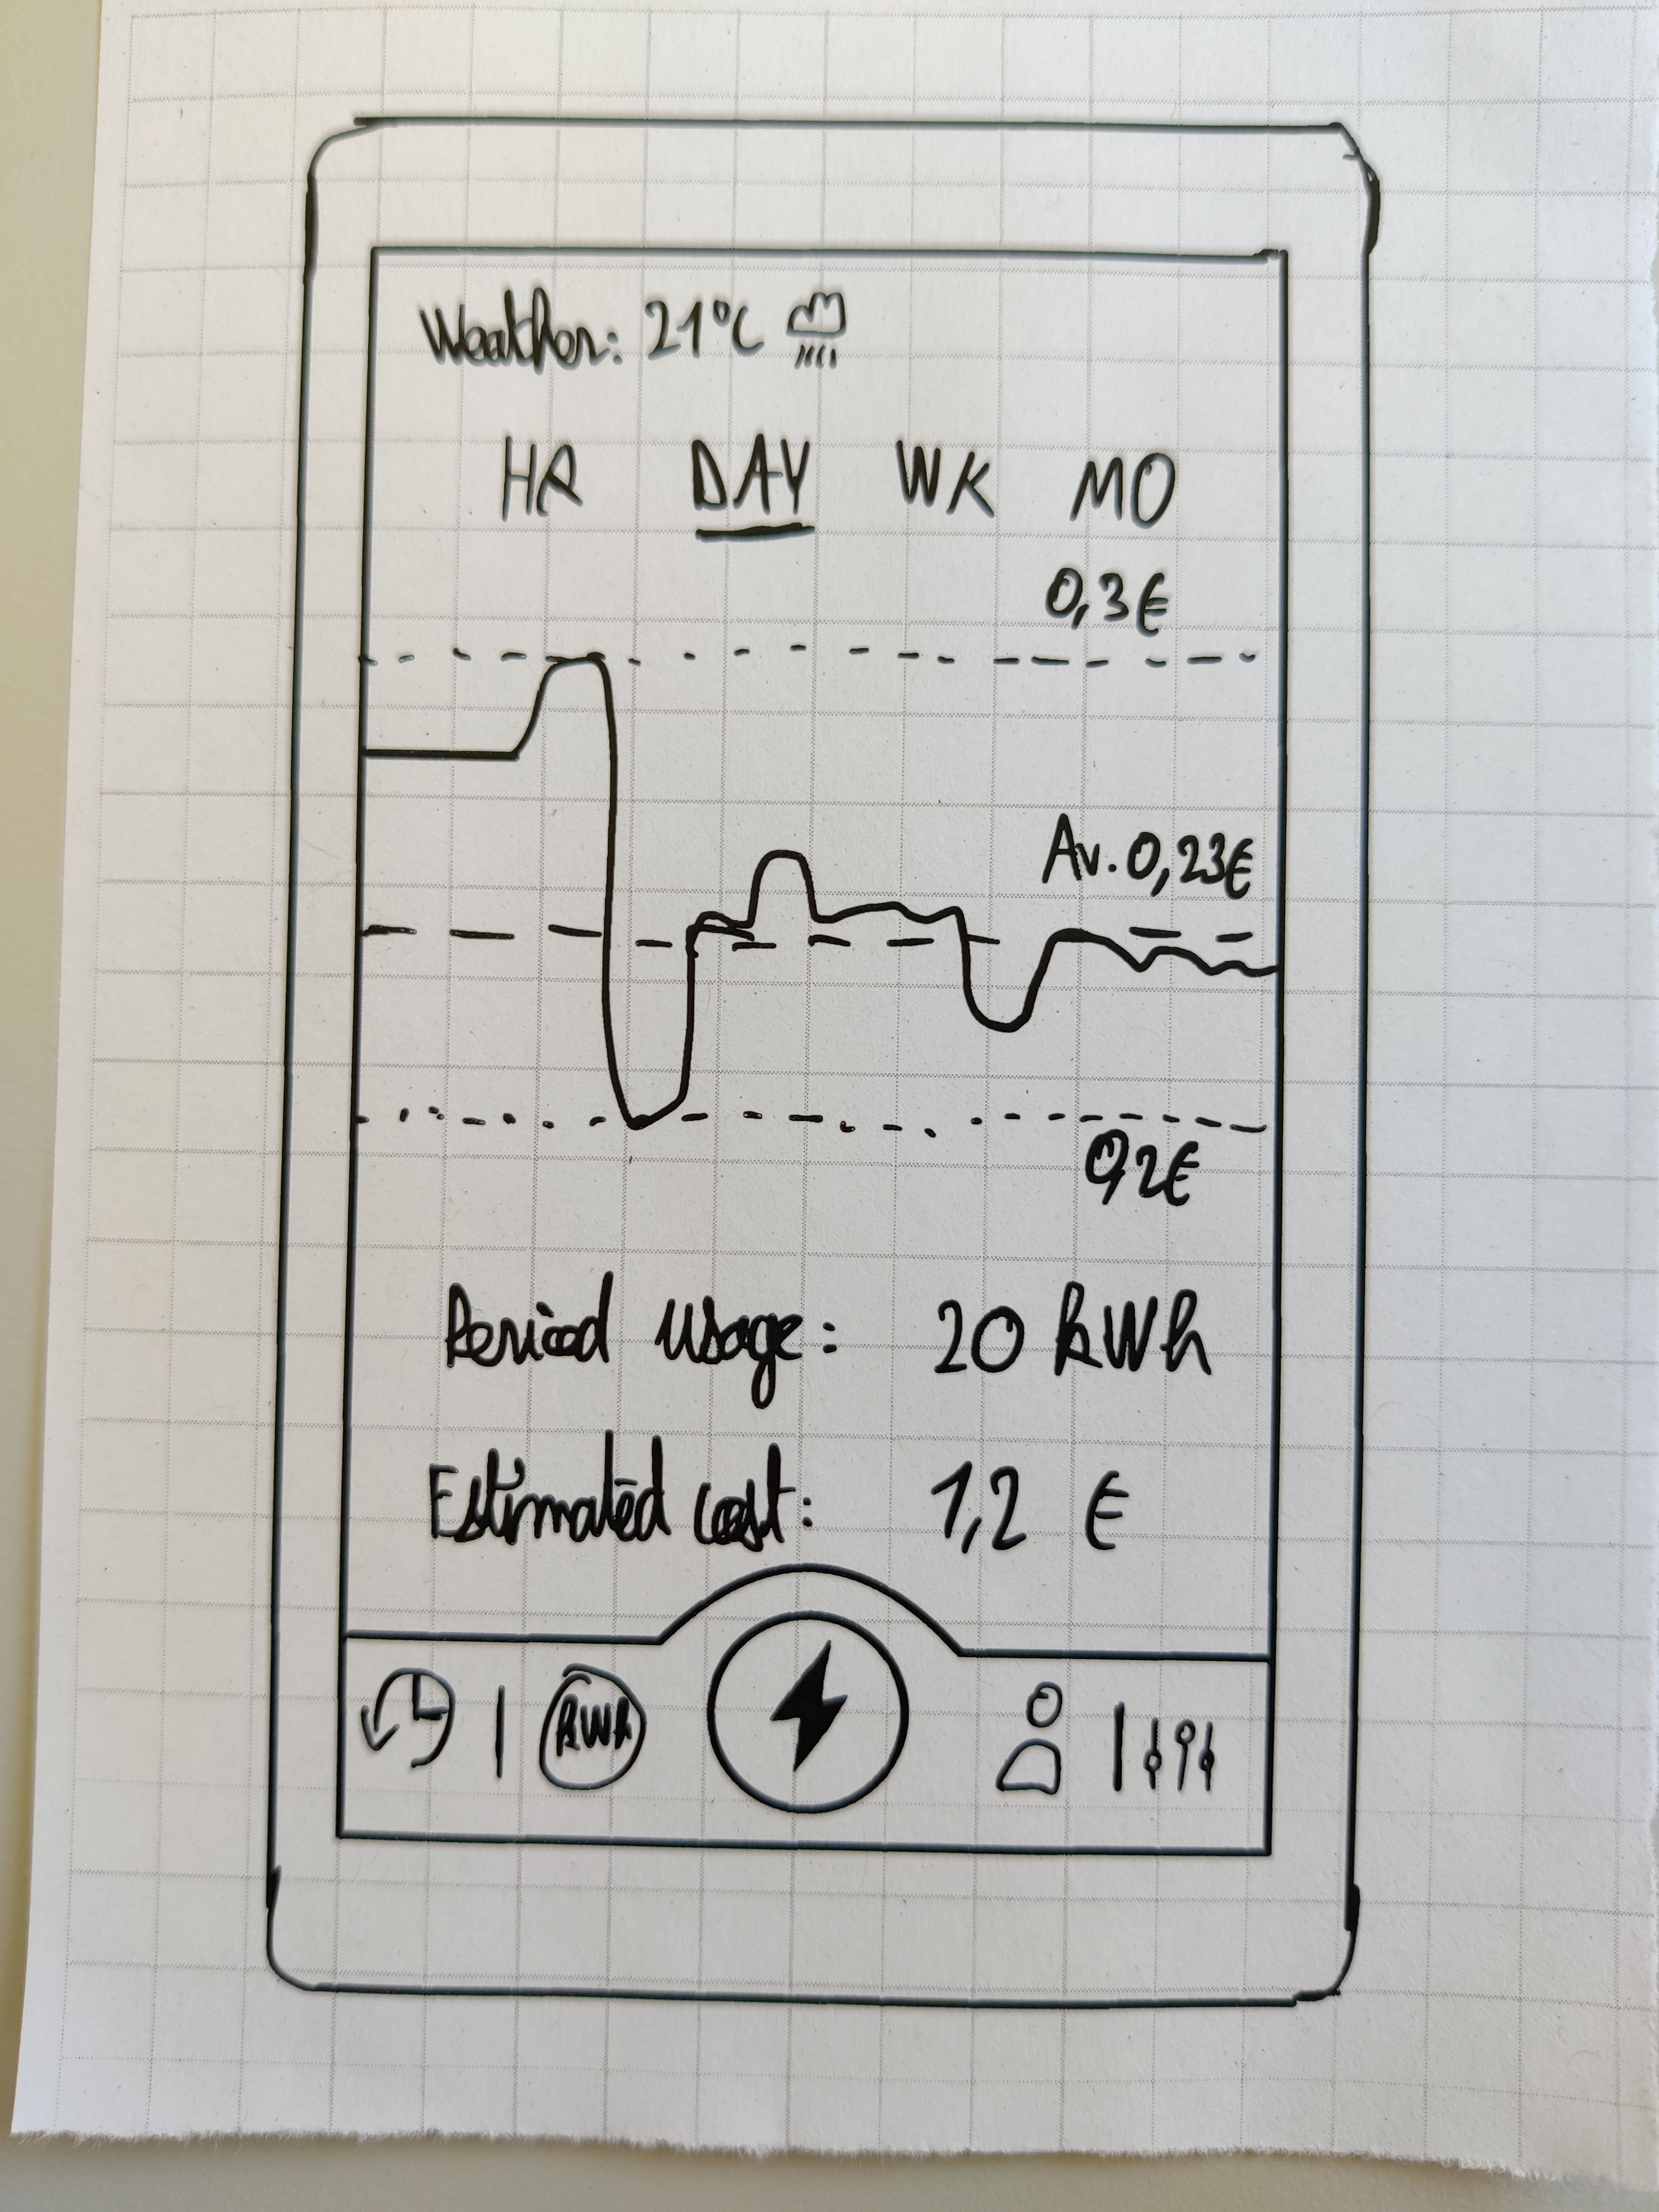 Weather: 21°C
HR DAY WK MO
0,3€
Av. 0,23€
0,2€
Period Usage: 20 kWh
Estimated cost: 1,2 €
kWh